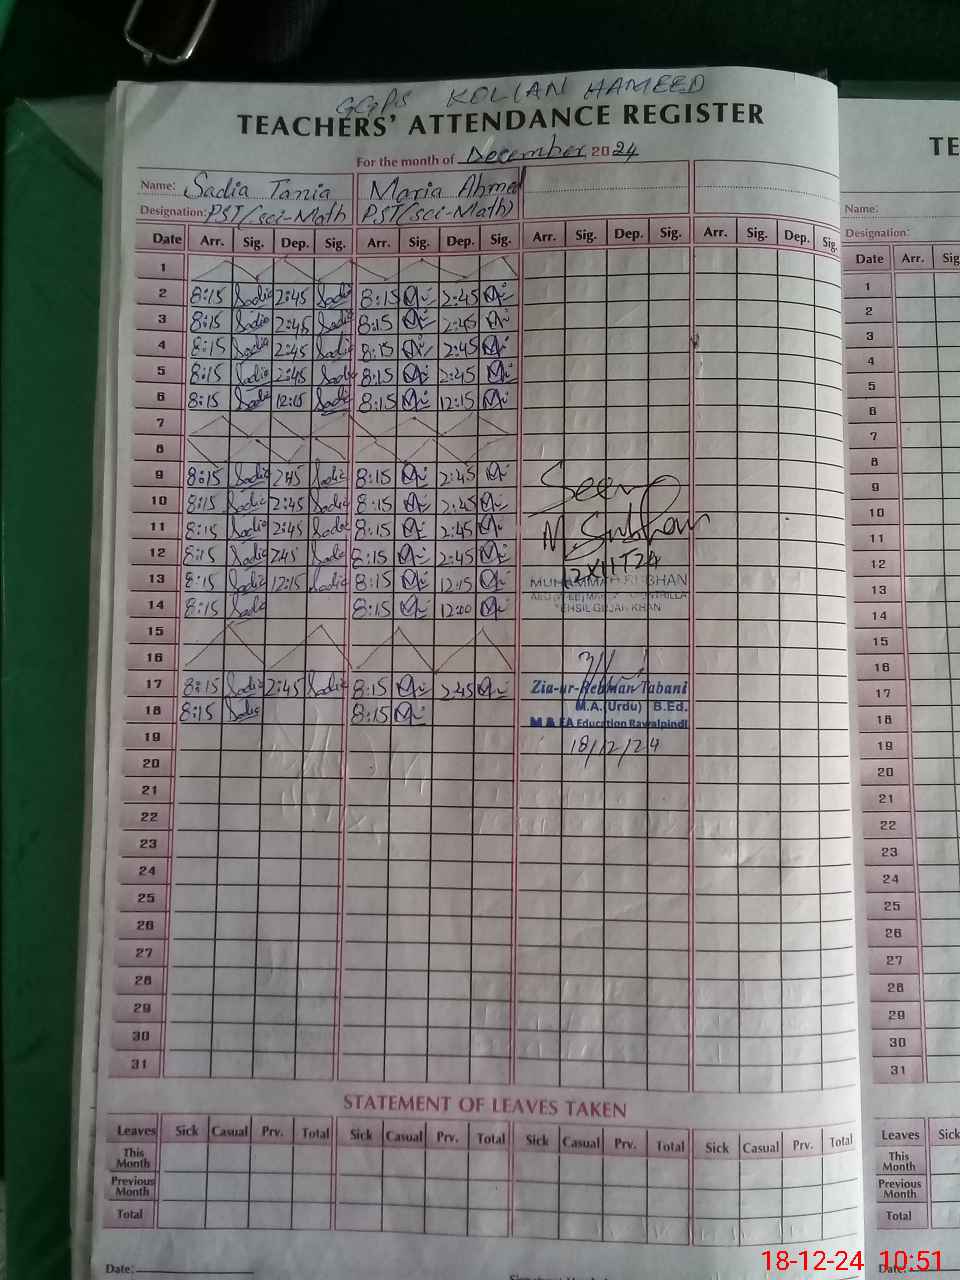 GGPS KOLIAN HAMEED
TEACHERS' ATTENDANCE REGISTER
For the month of December 2024
Name: Sadia Tania Maria Ahmed
Designation: PST(sci-Math PST(sci-Math)
Date Arr. Sig. Dep. Sig. Arr. Sig. Dep. Sig. Arr. Sig. Dep. Sig. Arr. Sig. Dep. Sig.
1
2 8:15 Sadia 2:45 Sadia 8:15 2:45
3 8:15 Sadia 2:45 Sadia 8:15 2:45
4 8:15 Sadia 2:45 Sadia 8:15 2:45
5 8:15 Sadia 2:45 Sadia 8:15 2:45
6 8:15 Sadia 12:15 Sadia 8:15 12:15
7
8
9 8:15 Sadia 2:45 Sadia 8:15 2:45
10 8:15 Sadia 2:45 Sadia 8:15 2:45
11 8:15 Sadia 2:45 Sadia 8:15 2:45
12 8:15 Sadia 2:45 Sadia 8:15 2:45
13 8:15 Sadia 12:15 Sadia 8:15 12:15
14 8:15 Sadia 8:15 12:00
15
16
17 8:15 Sadia 2:45 Sadia 8:15 2:45
18 8:15 Sadia 8:15
19
20
21
22
23
24
25
26
27
28
29
30
31
Seen
M. Subhan
12XIIT24
MUHAMMAD SUBHAN
TEHSIL GUJAR KHAN
Zia-ur-Rehman Tabani
M.A.(Urdu) B.Ed.
M & EA Education Rawalpindi
18/12/24
STATEMENT OF LEAVES TAKEN
Leaves Sick Casual Prv. Total Sick Casual Prv. Total Sick Casual Prv. Total Sick Casual Prv. Total
This Month
Previous Month
Total
Date:
TE
Name:
Designation:
Date Arr. Sig
1
2
3
4
5
6
7
8
9
10
11
12
13
14
15
16
17
18
19
20
21
22
23
24
25
26
27
28
29
30
31
Leaves Sick
This Month
Previous Month
Total
Date:
18-12-24 10:51